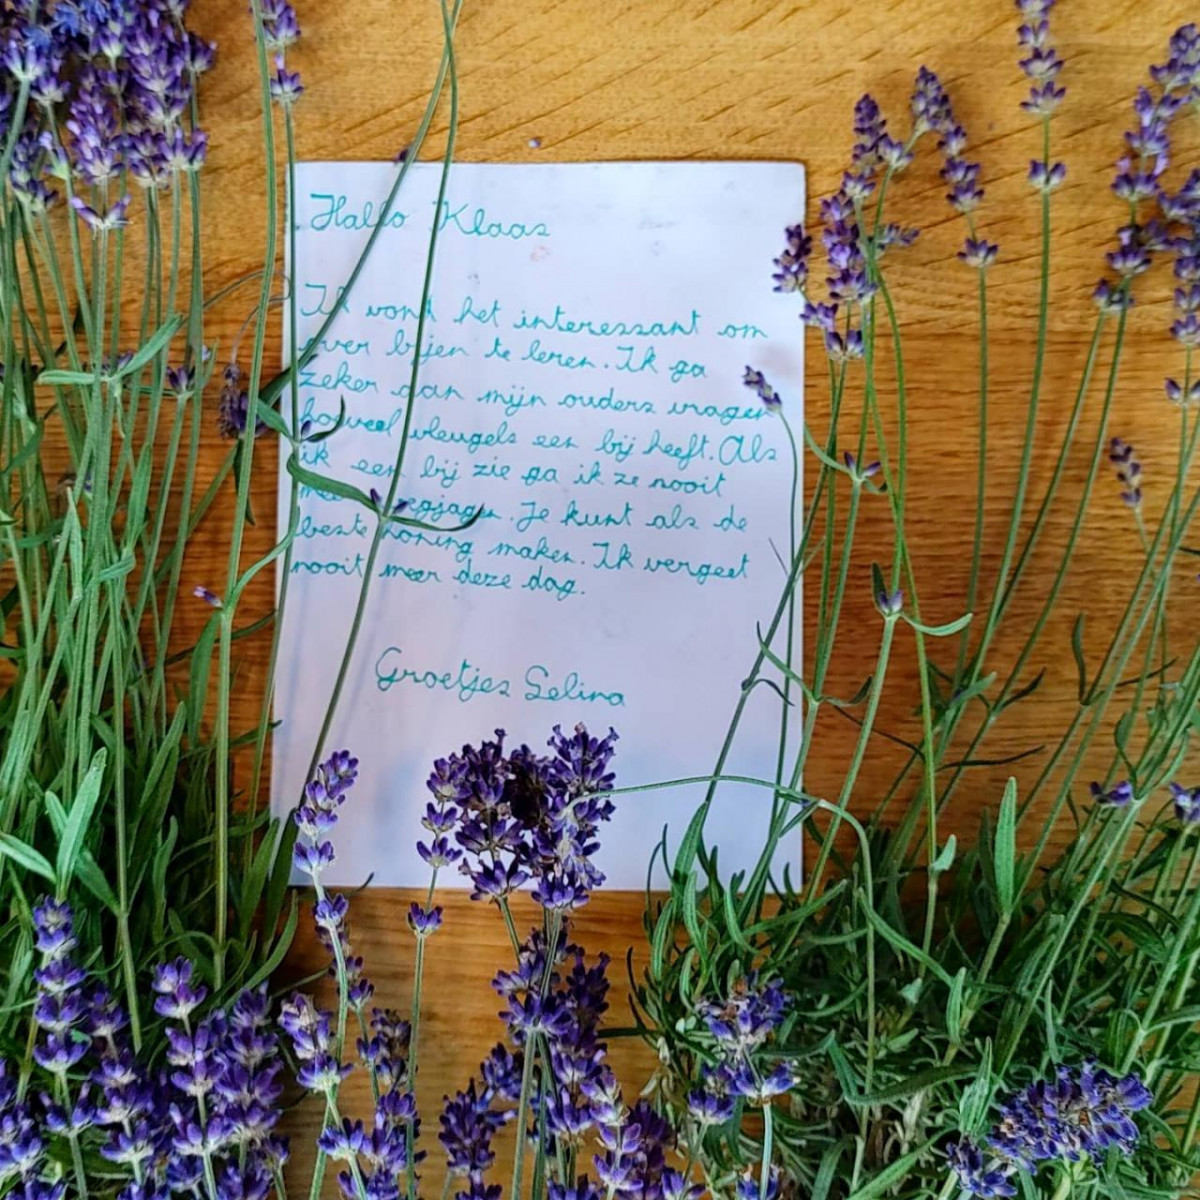 Hallo Klaas
Ik vond het interessant om
over bijen te leren. Ik ga
zeker aan mijn ouders vragen
hoeveel vleugels een bij heeft. Als
ik een bij zie ga ik ze nooit
meer wegjagen. Je kunt als de
beste honing maken. Ik vergeet
nooit meer deze dag.
Groetjes Selina